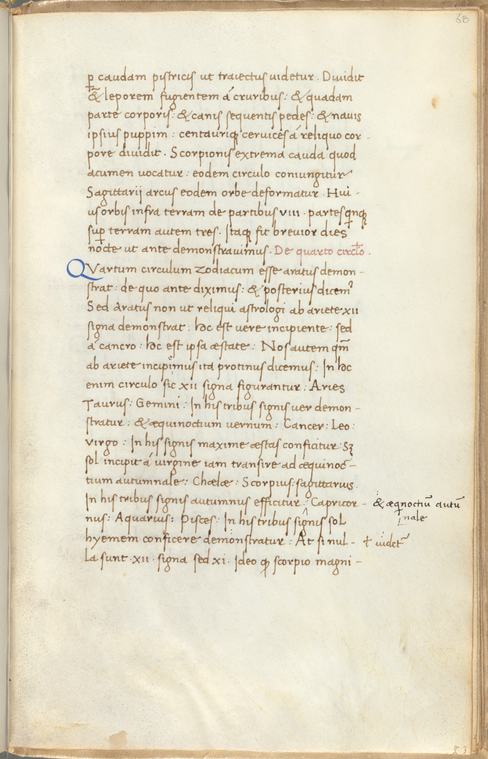 68
p̲ caudam pistricis ut traiectus uidetur. Diuidit
& leporem fugientem á cruribus: & quadam
parte corporis: & canis sequentis pedes: & nauis
ipsius puppim: centauriq; cervices á reliquo cor-
pore diuidit. Scorpionis extrema cauda quod
acumen uocatur: eodem circulo coniungitur
Sagittarii arcus eodem orbe deformatur. Hui-
us orbis infra terram de partibus VIII. partes qnq;
sup̲ terram autem tres. Itaq; fit breuior dies
nocte ut ante demonstrauimus. De quarto circlo.
QVartum circulum zodiacum esse aratus demon-
strat: de quo ante diximus: & posterius dicem᷒
Sed Aratus non ut reliqui astrologi ab ariete XII
signa demonstrat: hoc est uere incipiente: sed
a cancro: hoc est ipsa æstate: Nos autem qm̅
ab ariete incipimus ita protinus dicemus: In hoc
enim circulo sic XII signa figurantur: Aries
Taurus: Gemini: In his tribus signis uer demon-
stratur: & æquinoctium uernum: Cancer: Leo:
Virgo: In his signis maxime æstas conficitur: Sꝫ
sol incipit á uirgine iam transire ad æquinoc-
tium autumnale: Chœlæ: Scorpius: sagittarius.
In his tribus signis autumnus efficitur: Capricor-
& æqnoctiu̅ autu̅
nale
nus: Aquarius: Pisces: In his tribus signis sol
hyemem conficere demonstratur: At si nul-
ł uidet᷒
la sunt XII. signa sed XI. Ideo q̲ scorpio magni-
53